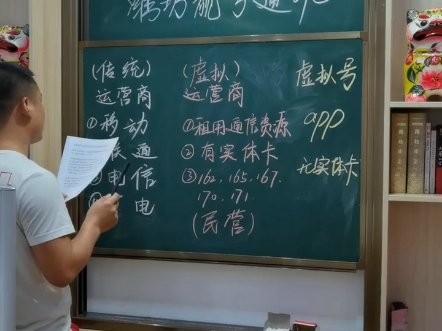 潍坊 号通吧
(传统)
运营商
①移动
通
③电信
电
(虚拟)
运营商
①租用通信资源
②有实体卡
③162、165、167、
170、171.
(民营)
虚拟号
app
无实体卡